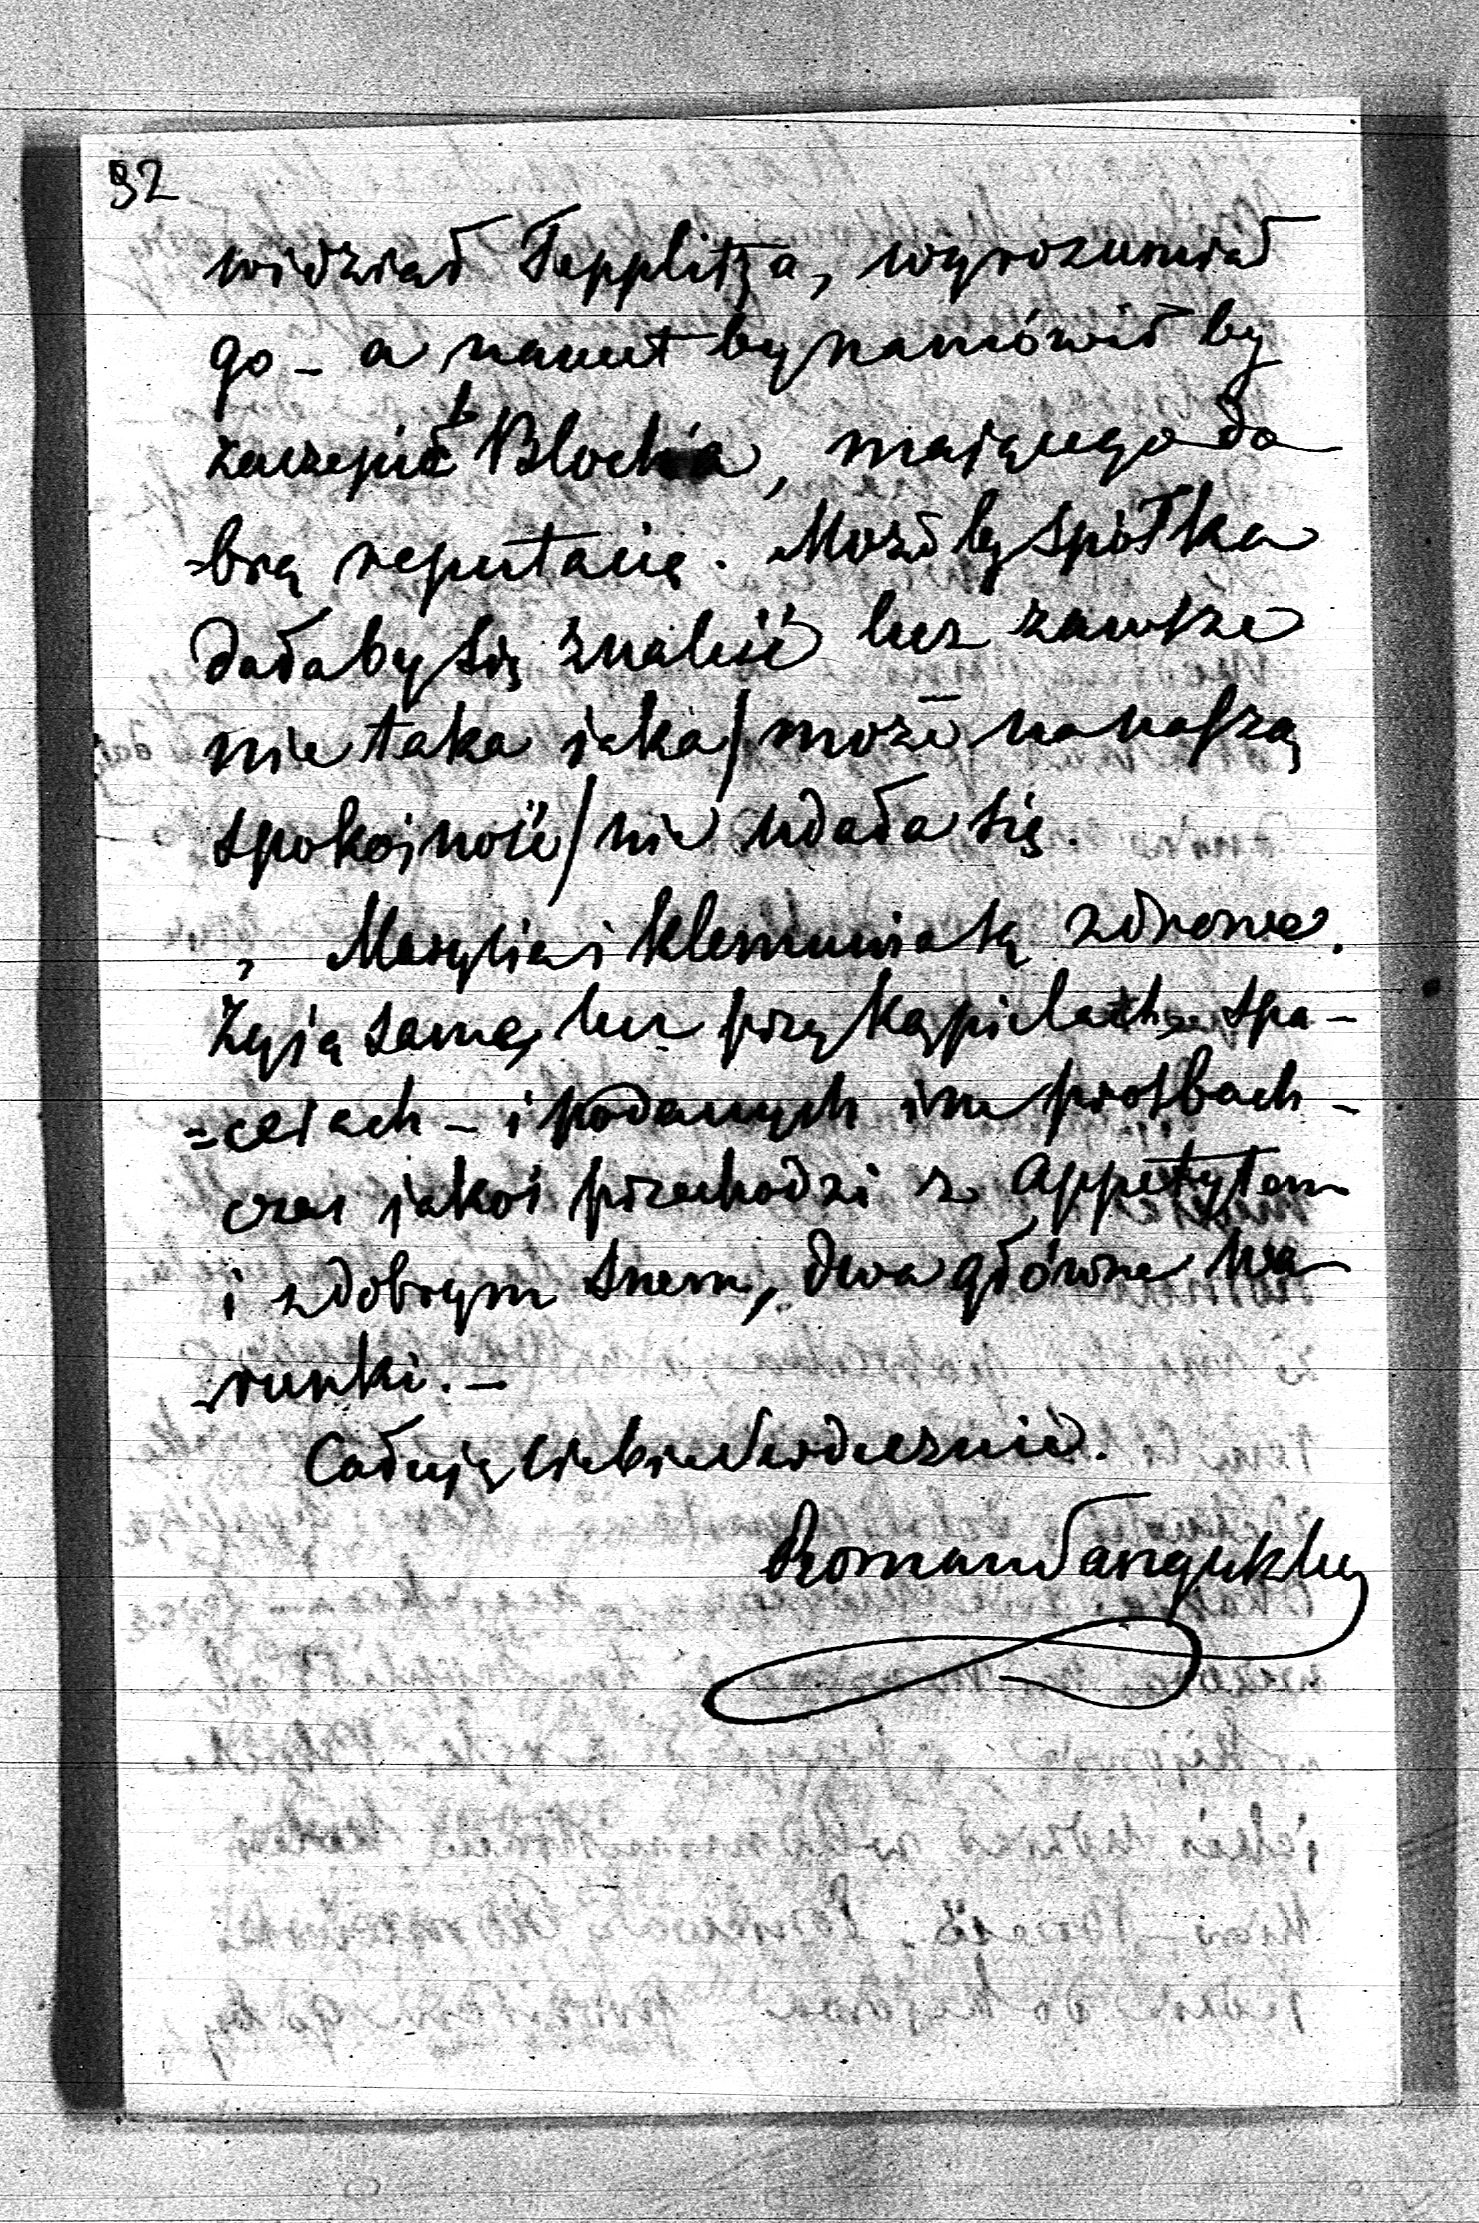 92
widział Tepplitza, wyrozumiał
go – a nawet by namówił by
zaczepić Blocha, mającego do
=brą reputacię. Może by Spółka
dała by się znaleść lecz zawsze
nie taka jaka / może na naszą
spokojność / nie udała się.
Marylia i Klemunia są zdrowe.
Żyją same, lecz przy kąpielach, spa-
=cerach – i podanych im prośbach –
czas jakoś przechodzi z appetytem
i z dobrym snem, dwa główne wa
-runki. –
Całuję Ciebie Serdecznie.
Roman Sanguszko